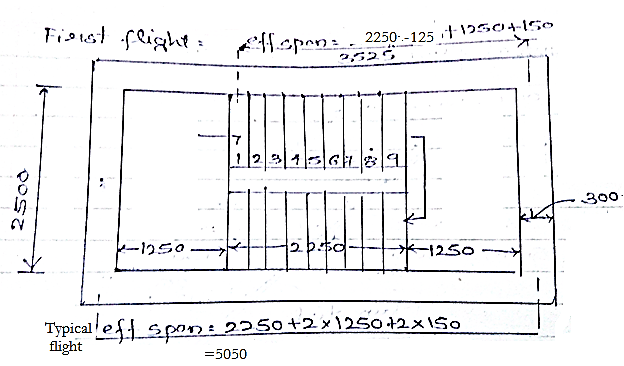 First flight: eff span = 2250-125 +1250+150
3,525
7
1 2 3 4 5 6 7 8 9
2500
300
1250 2250 1250
Typical flight eff span = 2250+2×1250+2×150
=5050